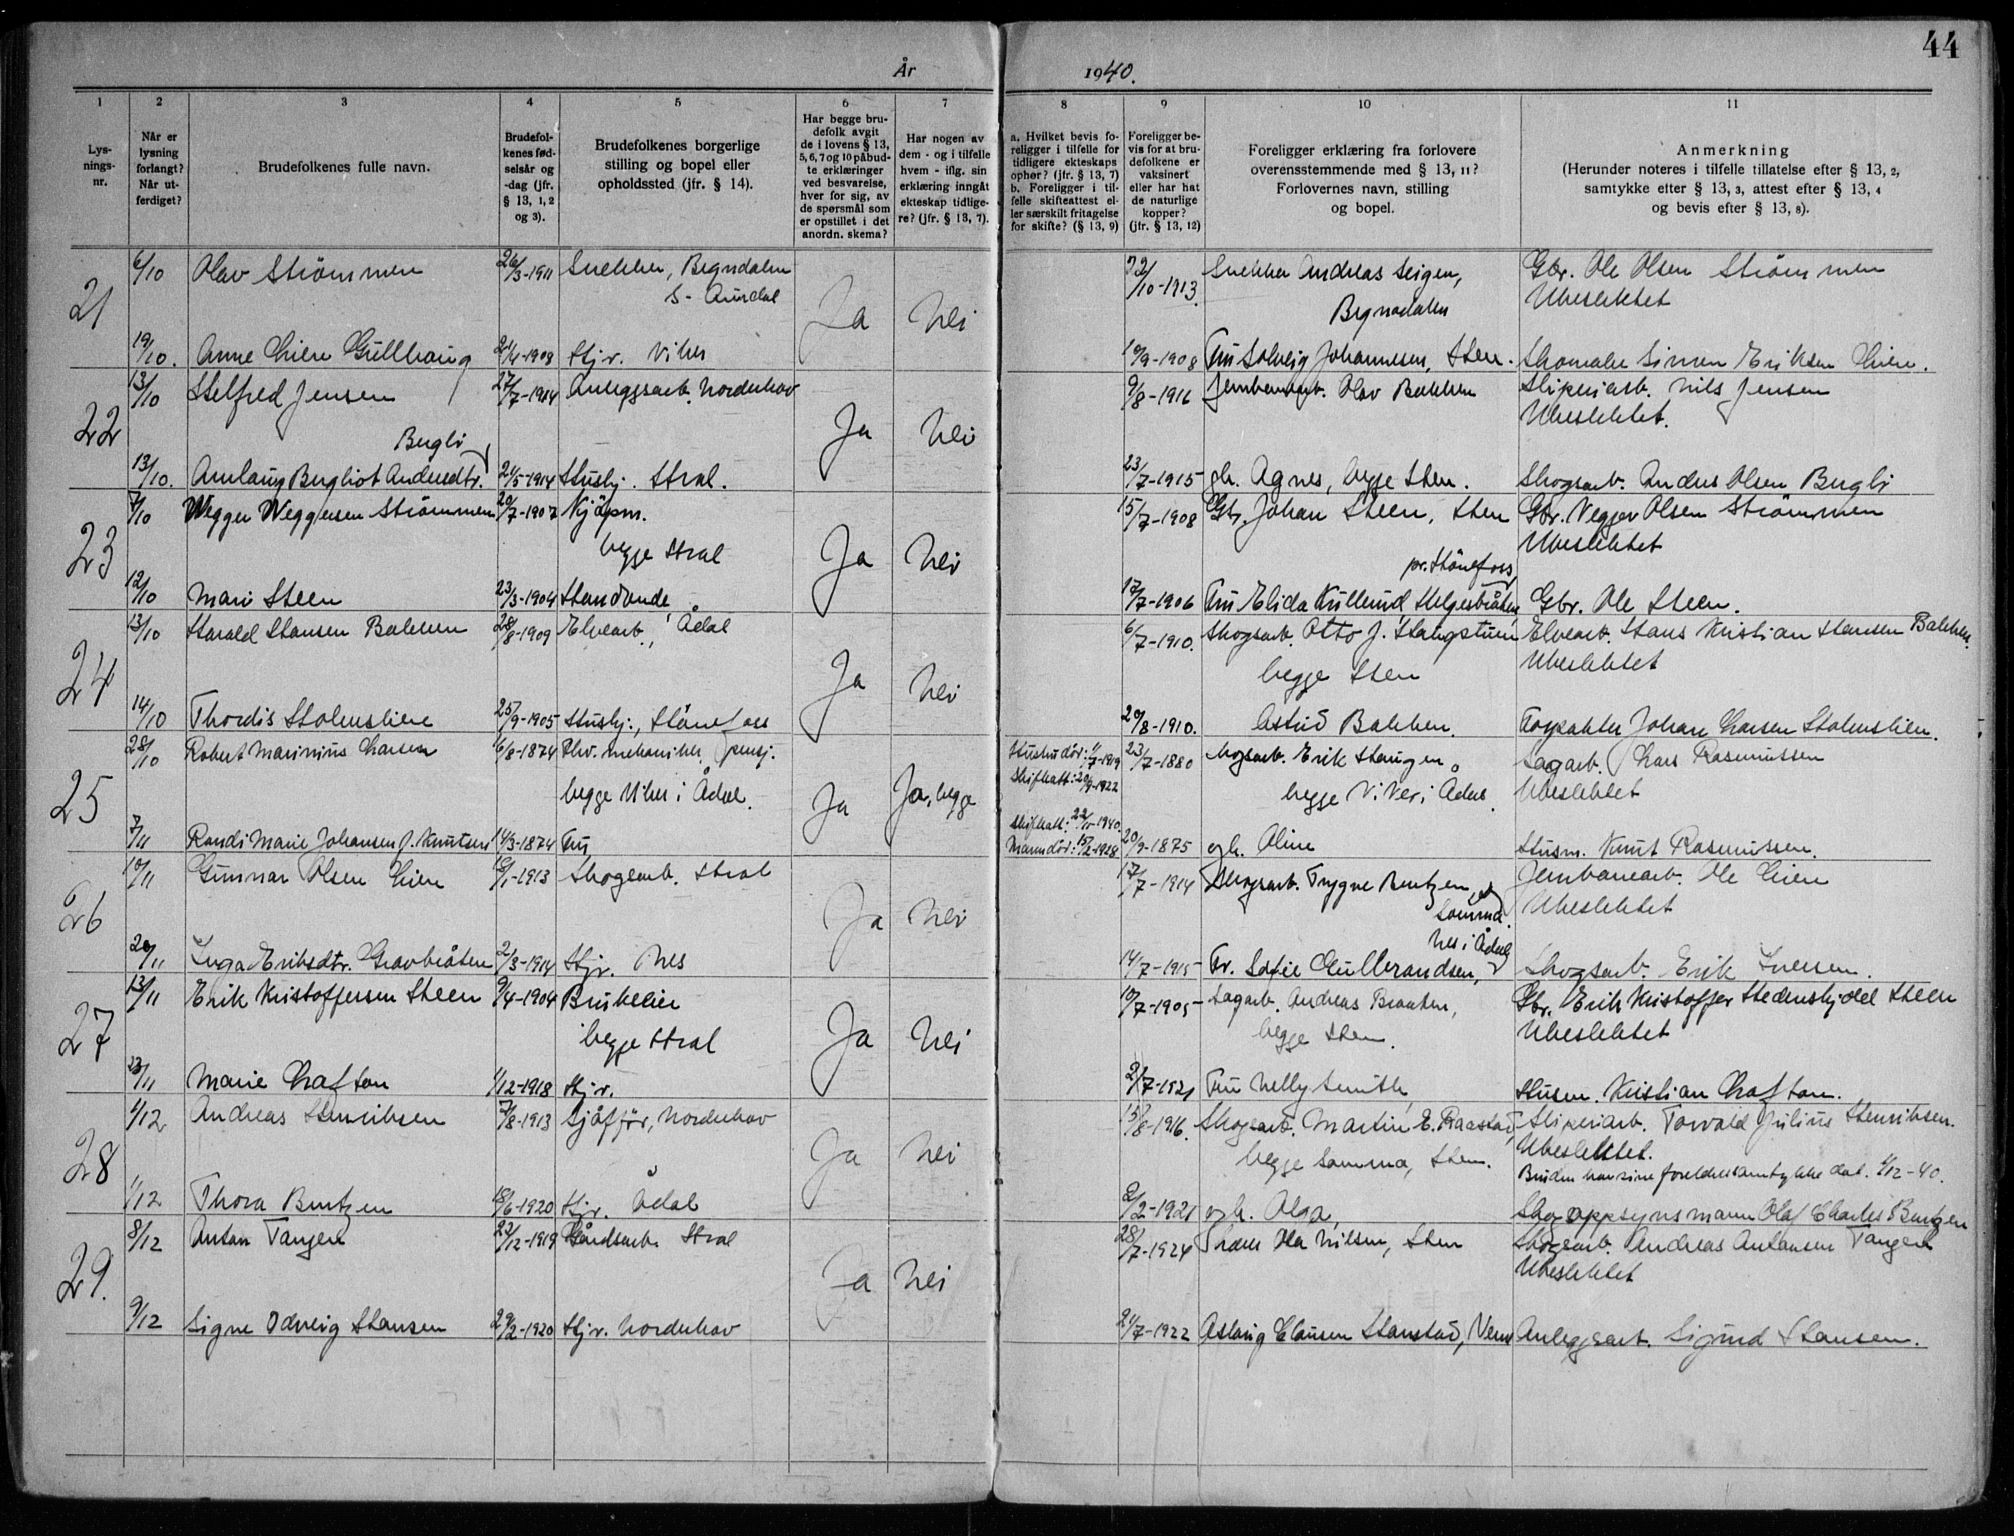 44
År 1940.
1 2 3 4 5 6 7 8 9 10 11
Lysningsnr.
Når er lysning forlangt? Når utferdiget?
Brudefolkenes fulle navn.
Brudefolkenes fødselsår og -dag (jfr. § 13, 1, 2 og 3).
Brudefolkenes borgerlige stilling og bopel eller opholdssted (jfr. § 14).
Har begge brudefolk avgit de i lovens § 13, 5, 6, 7 og 10 påbudte erklæringer ved besvarelse, hver for sig, av de spørsmål som er opstillet i det anordn. skema?
Har nogen av dem - og i tilfelle hvem - iflg. sin erklæring inngåt ekteskap tidligere? (jfr. § 13, 7).
a. Hvilket bevis foreligger i tilfelle for tidligere ekteskaps ophør? (jfr. § 13, 7) b. Foreligger i tilfelle skifteattest eller særskilt fritagelse for skifte? (§ 13, 9)
Foreligger bevis for at brudefolkene er vaksinert eller har hat de naturlige kopper? (jfr. § 13, 12)
Foreligger erklæring fra forlovere overensstemmende med § 13, 11? Forlovernes navn, stilling og bopel.
Anmerkning (Herunder noteres i tilfelle tillatelse efter § 13, 2, samtykke efter § 13, 3, attest efter § 13, 4 og bevis efter § 13, 8).
21 6/10 Olav Strömmen 26/3-1911 Snekker, Begndalen S- Aurdal Ja Nei /10-1913 Snekker Andreas Seigen, Begnadalen Gbr. Ole Olsen Strömmen Ubeslektet
19/10. Anne Lien Gullhaug /4-1908 Hjv. Viker 10/9-1908 Fru Solveig Johannesen, Sten. Skomaker Simen Eriksen Lien.
22 13/10 Helfred Jensen 27/7-1914 Anleggsarb. Norderhov Ja Nei 9/8-1916 Jernbanearb. Olav Bakken Sliperiarb. Nils Jensen Ubeslektet.
13/10. Amlaug Bergliot Andersdtr. Bergli 21/5-1914 Hushj. Hval. 23/7-1915 gh. Agnes, begge Sten. Skogsarb. Anders Olsen Bergli
23 7/10 Wegger Weggersen Strömmen 20/7-1907 Kjöpm. begge Hval Ja Nei 15/7-1908 Gbr. Johan Steen, Sten Gbr. Vegger Olsen Strömmen Ubeslektet
12/10 Mari Steen 23/3-1904 Handlende 17/7-1906 Fru Elida Kullerud, Helgesbråten pr. Hönefoss Gbr. Ole Steen.
24 13/10 Harald Hansen Bakken 28/8-1909 Elvearb., Ådal Ja Nei 6/7-1910. Skogsarb. Otto J. Haugstuen begge Sten Elvearb. Hans Kristian Hansen Bakken. Ubeslektet
14/10 Thordis Holmslien 25/9-1905 Hushj., Hönefoss 20/8-1910. Astrid Bakken. Forpakter Johan Larsen Holmslien.
25 28/10 Robert Marinius Larsen 16/8-1874 Fhv. mekaniker, pensj. begge Viker i Ådal. Ja Ja, begge Hustru död: 1/7-1919 Skifteatt: 20/9-1922 23/7-1880 Skogsarb. Erik Haugen begge Viker i Ådal. Sagarb. Lars Rasmussen Ubeslektet
7/11 Randi Marie Johansen f. Knutsen 14/3-1874 Fru Skifteatt: 22/11-1940. Mann död: 15/2-1928 20/9-1875 gh. Oline Husm. Knut Rasmussen.
26 10/11 Gunnar Olsen Lien 16/1-1913 Skogsarb. Hval Ja Nei 17/7-1914 Skogsarb. Trygve Bentzen, Somma Jernbanearb. Ole Lien Ubeslektet
20/11 Inga Eriksdtr. Gravbråten 2/3-1914 Hjv. Nes 14/7-1915 Fr. Sofie Gulbrandsen, Nes i Ådal Skogsarb. Erik Iversen.
27 13/11 Erik Kristoffersen Steen 9/4-1904 Brukeier begge Hval Ja Nei 10/7-1905 Sagarb. Andreas Braaten, begge Sten. Gbr. Erik Kristoffer Hedenskjold Steen Ubeslektet
23/11 Marie Lafton 1/12-1918 Hjv. 2/7-1921 Fru Nelly Smith, Husm. Kristian Lafton.
28 1/12 Andreas Henriksen 7/8-1913 Sjåfför, Norderhov Ja Nei 15/8-1916. Skogsarb. Martin E. Raastad, begge Somma, Sten. Sliperiarb. Torvald Julius Henriksen. Ubeslektet. Bruden har sine foreldres samtykke dat. 1/12-40.
1/12 Thora Bentzen 18/6-1920 Hjv. Ådal 2/2-1921 gh. Olga, Skogoppsynsmann Olaf Charles Bentzen
29. 8/12 Anton Tangen 22/12-1919 Gårdsarb. Hval Ja Nei 28/7-1924 Ola Nilsen, Sten Skogsarb. Andreas Antonsen Tangen Ubeslektet
9/12 Signe Odveig Hansen 29/2-1920 Hjv. Norderhov 21/7-1922 Aslaug Clausen Hanstad, Veme Anleggsarb. Sigurd Hansen.